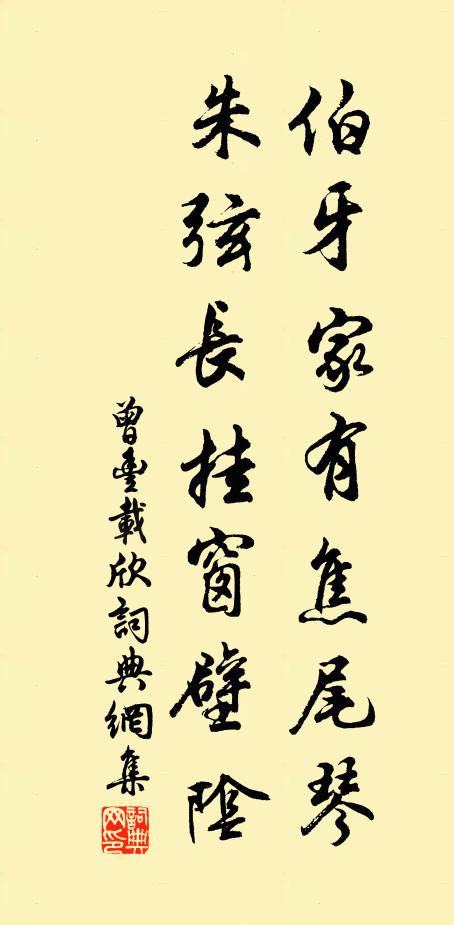 伯牙家有焦尾琴
朱弦長挂窗壁陰
曾豐載欣詞典網集
詞典网印